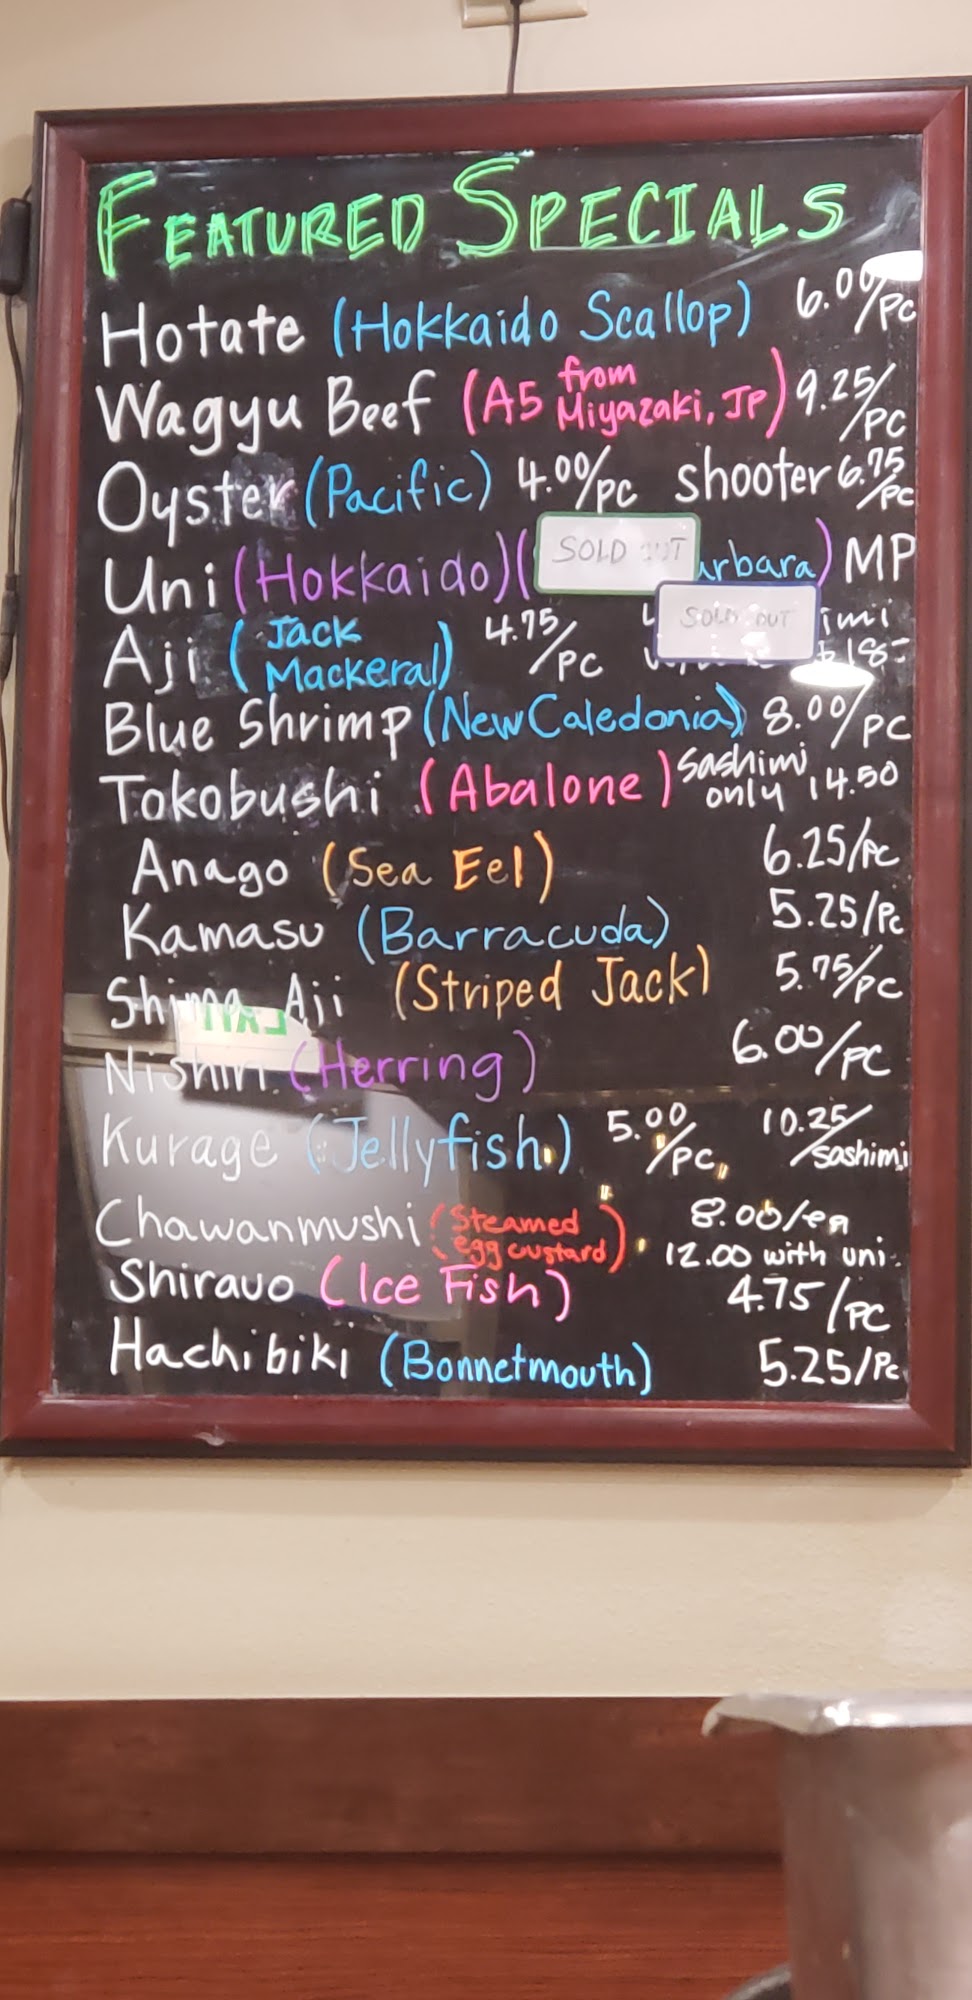 FEATURED SPECIALS
Hotate (Hokkaido Scallop) 6.00/pc
Wagyu Beef (A5 from Miyazaki, JP) 9.25/pc
Oyster (Pacific) 4.00/pc shooter 6.75/pc
Uni (Hokkaido) ( SOLD OUT arbara) MP
Aji (Jack Mackeral) 4.75/pc SOLD OUT imi
18-
Blue Shrimp (New Caledonia) 8.00/pc
Tokobushi (Abalone) sashimi only 14.50
Anago (Sea Eel) 6.25/pc
Kamasu (Barracuda) 5.25/pc
Shima Aji (Striped Jack) 5.75/pc
Nishin (Herring) 6.00/pc
Kurage (Jellyfish) 5.00/pc 10.25/sashimi
Chawanmushi (Steamed egg custard) 8.00/ea
12.00 with uni
Shirauo (Ice Fish) 4.75/pc
Hachibiki (Bonnetmouth) 5.25/pc